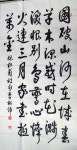 國破山河在城春
草木深感時花濺
淚恨別鳥驚心烽
火連三月家書抵
萬金